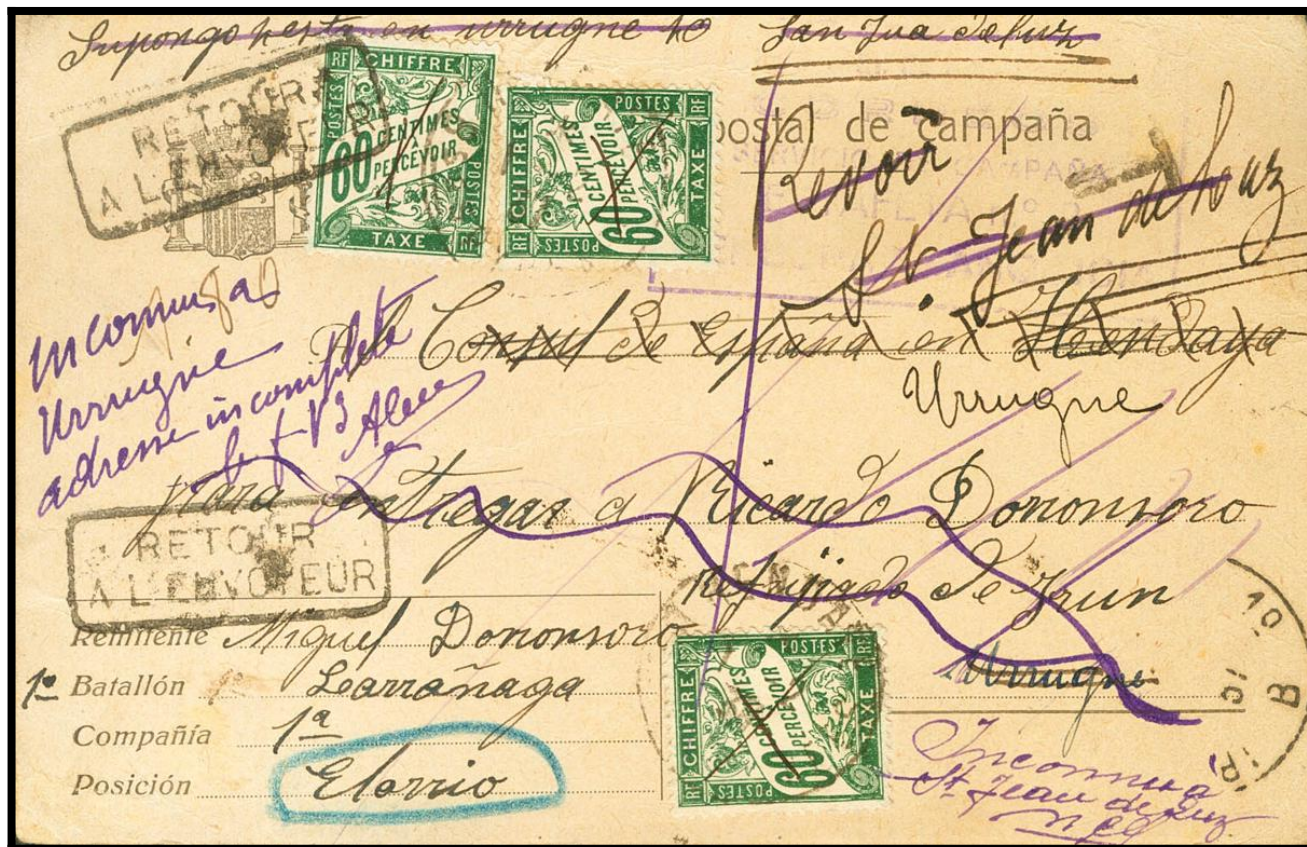 Supongo esta en urrugne to San Jua de luz
RETOUR
A L'ENVOYEUR
RF CHIFFRE
POSTES
60 CENTIMES
À PERCEVOIR
TAXE
RF POSTES
RF CHIFFRE
POSTES
60 CENTIMES
À PERCEVOIR
TAXE
RF POSTES
postal de campaña
CAMPAÑA
T
Revoir
St Jean de Luz
Inconnu as
Urrugne
adresse incomplete
Al Consul de España en Hendaya
Urrugne
para entregar a Ricardo Dononsoro
Refujiado de Irun
Urrugne
RETOUR
A L'ENVOYEUR
Remitente Miguel Dononsoro
1º Batallón Larrañaga
Compañia 1ª
Posición Elorrio
RF CHIFFRE
POSTES
60 CENTIMES
À PERCEVOIR
TAXE
RF POSTES
19
B
Inconnu a
St Jean de Luz